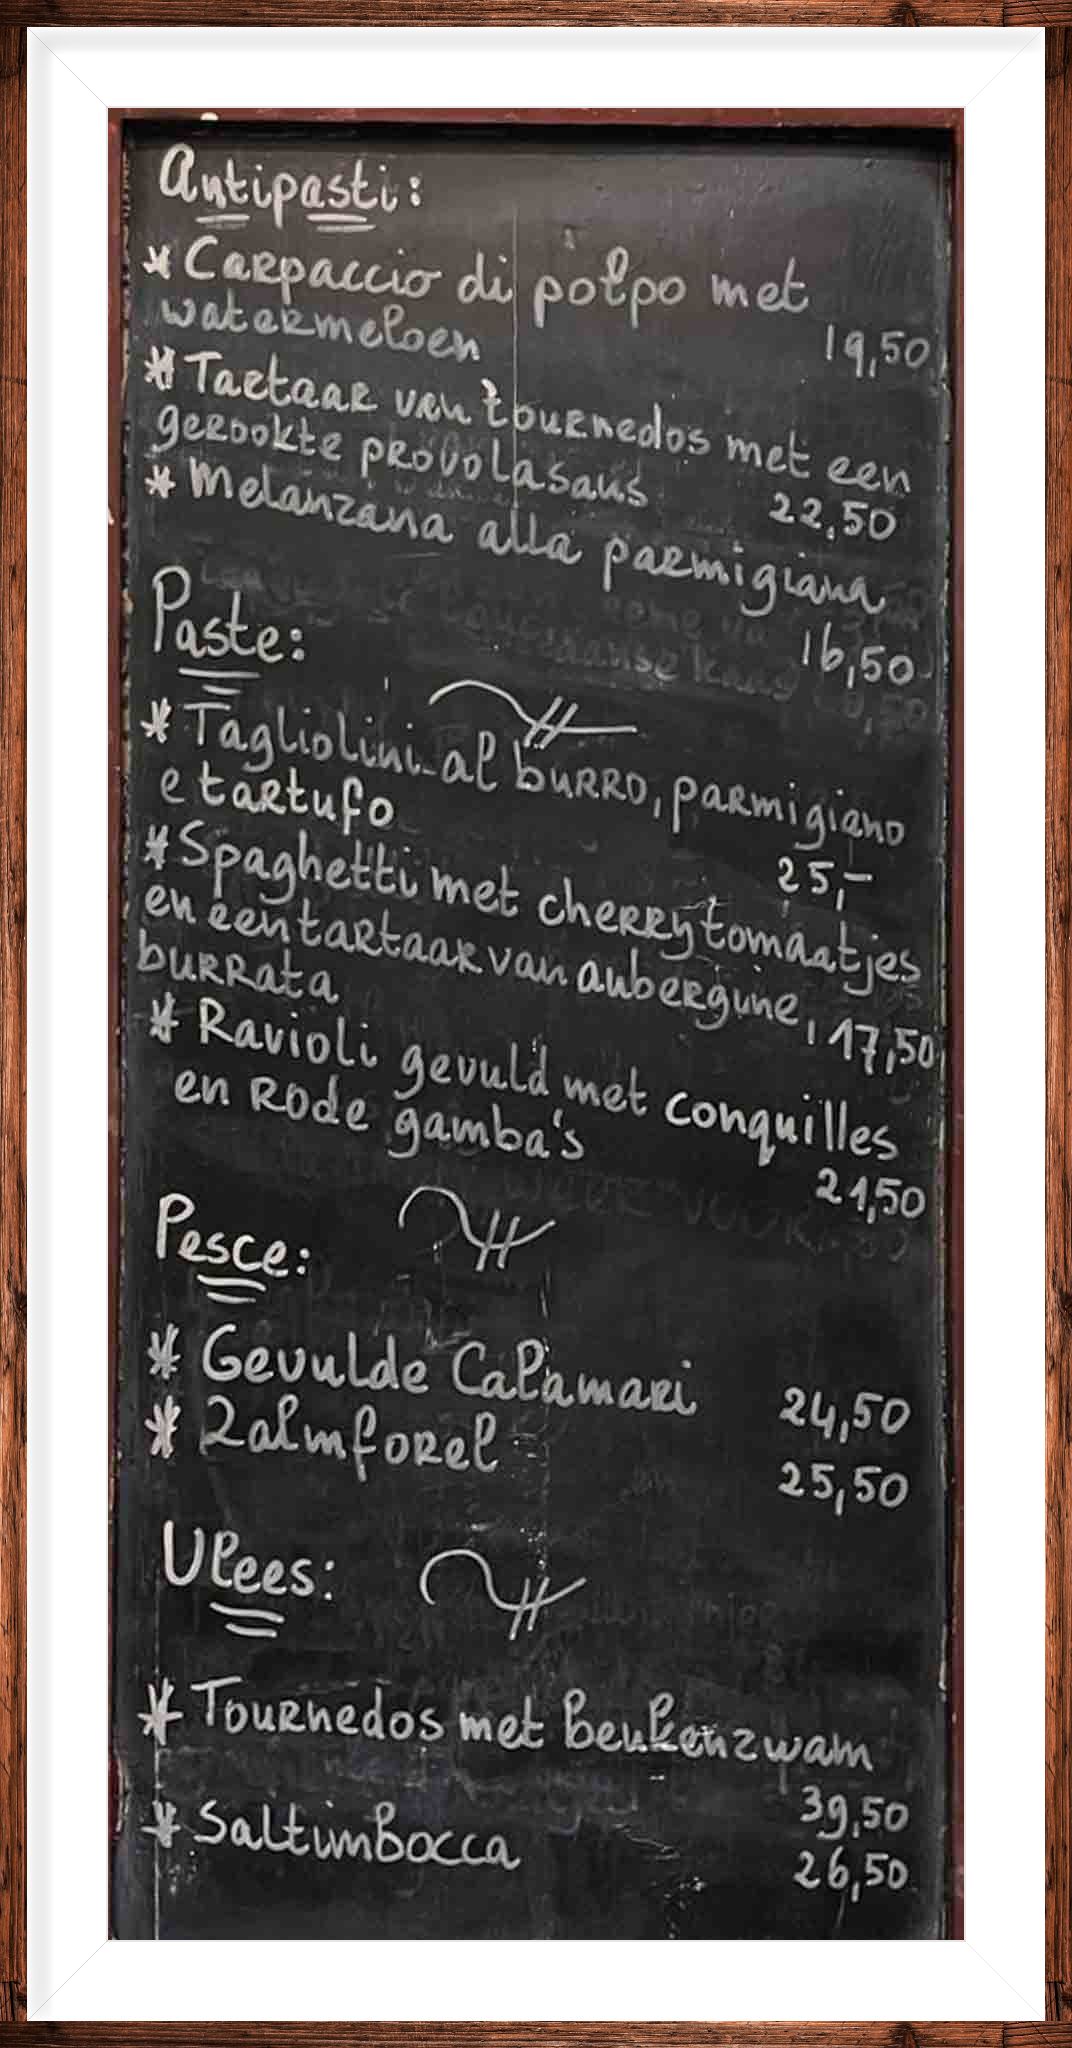 Antipasti:
* Carpaccio di polpo met
watermeloen 19,50
* Tartaar van tournedos met een
gerookte provolasaus 22,50
* Melanzana alla parmigiana
16,50
Paste:
* Tagliolini al burro, parmigiano
e tartufo 25,-
* Spaghetti met cherrytomaatjes
en een tartaar van aubergine,
burrata 17,50
* Ravioli gevuld met conquilles
en rode gamba's 21,50
Pesce:
* Gevulde Calamari 24,50
* Zalmforel 25,50
Vlees:
* Tournedos met Beukenzwam
39,50
* SaltimBocca 26,50